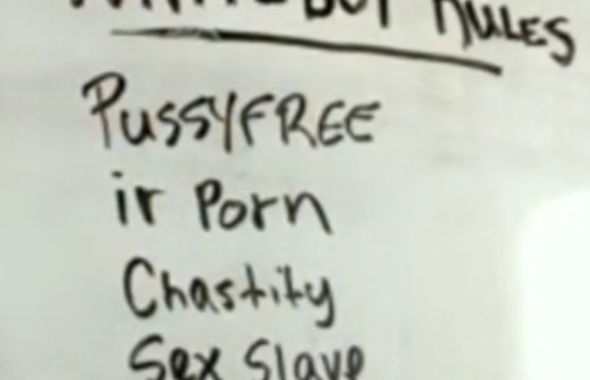 RULES
PUSSYFREE
ir Porn
Chastity
Sex Slave